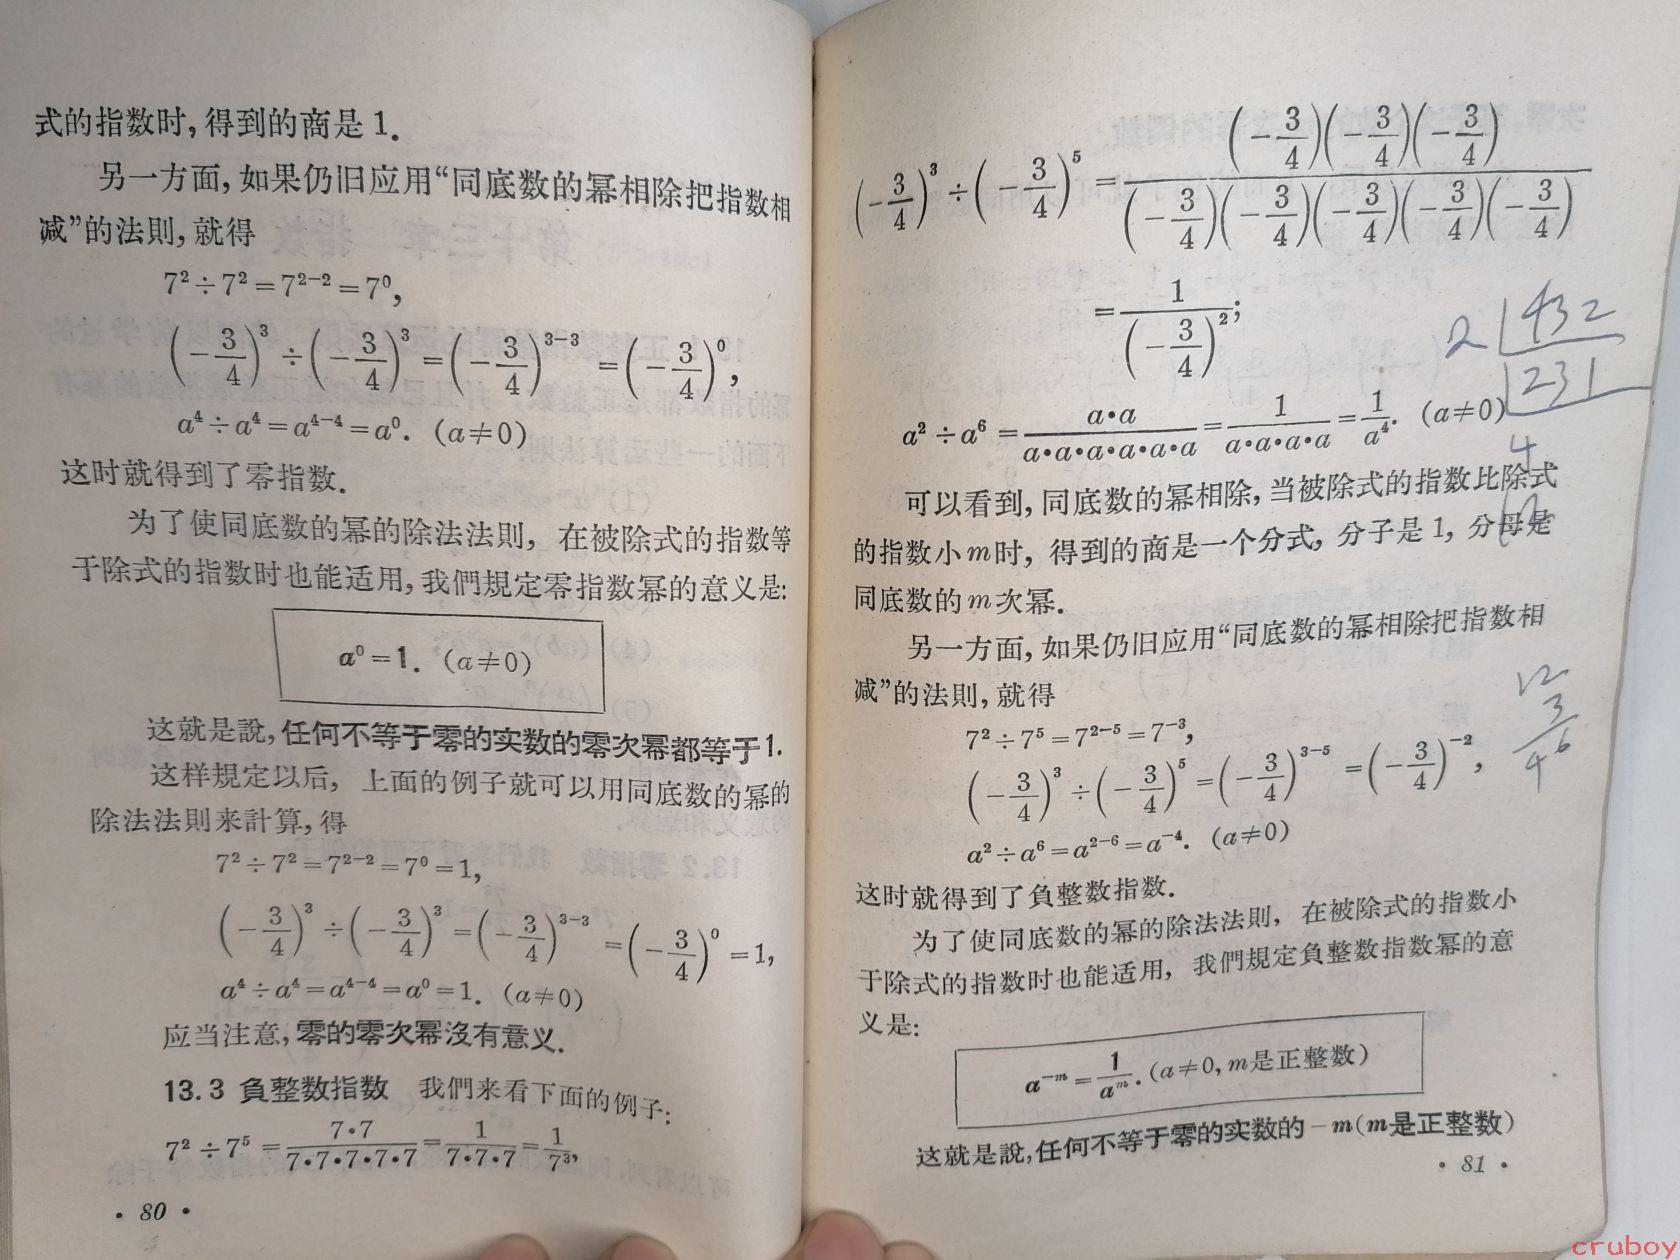 式的指数时,得到的商是 1.
另一方面,如果仍旧应用“同底数的幂相除把指数相
减”的法則,就得
7²÷7²=7²⁻²=7⁰,
(-3/4)³÷(-3/4)³=(-3/4)³⁻³=(-3/4)⁰,
a⁴÷a⁴=a⁴⁻⁴=a⁰. (a≠0)
这时就得到了零指数.
为了使同底数的幂的除法法則, 在被除式的指数等
于除式的指数时也能适用,我們規定零指数幂的意义是:
a⁰=1. (a≠0)
这就是說,任何不等于零的实数的零次幂都等于1.
这样規定以后, 上面的例子就可以用同底数的幂的
除法法則来計算,得
7²÷7²=7²⁻²=7⁰=1,
(-3/4)³÷(-3/4)³=(-3/4)³⁻³=(-3/4)⁰=1,
a⁴÷a⁴=a⁴⁻⁴=a⁰=1. (a≠0)
应当注意,零的零次幂沒有意义.
13.3 負整数指数 我們来看下面的例子:
7²÷7⁵=7•7/7•7•7•7•7=1/7•7•7=1/7³,
• 80 •
(-3/4)³÷(-3/4)⁵=(-3/4)(-3/4)(-3/4)/(-3/4)(-3/4)(-3/4)(-3/4)(-3/4)
=1/(-3/4)²;
a²÷a⁶=a•a/a•a•a•a•a•a=1/a•a•a•a=1/a⁴. (a≠0)
可以看到,同底数的幂相除,当被除式的指数比除式
的指数小m时, 得到的商是一个分式, 分子是 1, 分母是
同底数的m次幂.
另一方面,如果仍旧应用“同底数的幂相除把指数相
减”的法則,就得
7²÷7⁵=7²⁻⁵=7⁻³,
(-3/4)³÷(-3/4)⁵=(-3/4)³⁻⁵=(-3/4)⁻²,
a²÷a⁶=a²⁻⁶=a⁻⁴. (a≠0)
这时就得到了負整数指数.
为了使同底数的幂的除法法則, 在被除式的指数小
于除式的指数时也能适用, 我們規定負整数指数幂的意
义是:
a⁻ᵐ=1/aᵐ. (a≠0, m是正整数)
这就是說,任何不等于零的实数的-m(m是正整数)
• 81 •
2 432
231
4
12
3
4 6
cruboy